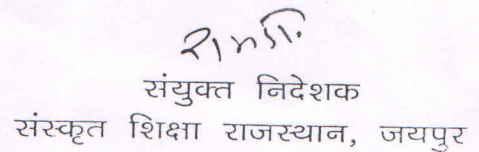 संयुक्त निदेशक
संस्कृत शिक्षा राजस्थान, जयपुर